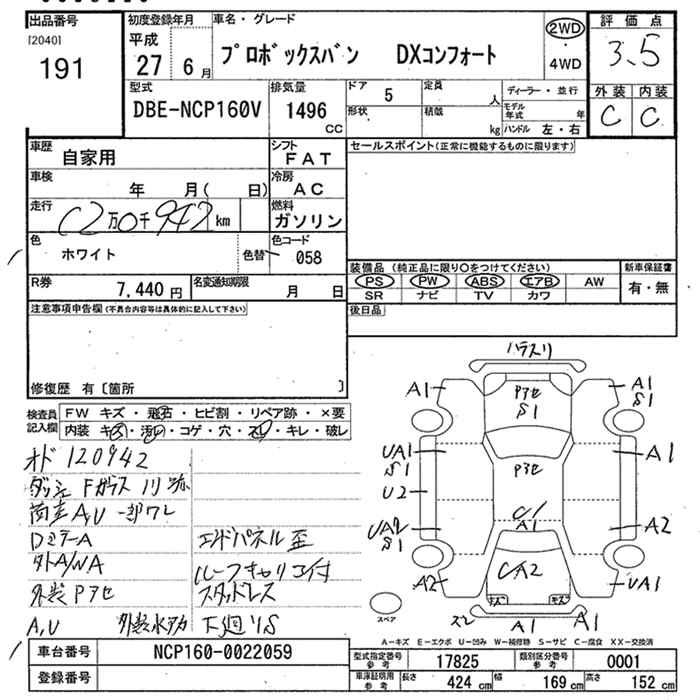 出品番号
[2040]
191
初度登録年月
平成
27 6 月
車名・グレード
プロボックスバン DXコンフォート
2WD
・
4WD
評価点
3.5
外装 内装
C C
型式
DBE-NCP160V
排気量
1496
CC
ドア 5
形状
定員 人
積載 kg
ディーラー・並行
モデル年式 年
ハンドル 左・右
車歴
自家用
シフト
FAT
車検
年 月( 日)
冷房
AC
走行
12万0千942km
燃料
ガソリン
色
ホワイト
色替
色コード
058
R券
7,440円
名変通知期限
月 日
セールスポイント(正常に機能するものに限ります)
装備品(純正品に限り○をつけてください)
PS PW ABS エアB AW
SR ナビ TV カワ
新車保証書
有・無
後日品
注意事項申告欄(不具合内容等は具体的に記入して下さい)
修復歴 有〔箇所 〕
検査員記入欄
FW キズ・飛石・ヒビ割・リペア跡・×要
内装 キズ・汚れ・コゲ・穴・スレ・キレ・破レ
オド 120942
ダッシュ Fガラス
A,U 一部ワレ
DミラーA
外A/WA
外装 Pアセ
A,U
エンドパネル歪
ルーフキャリコ付
スタッドレス
下廻りS
ハラスリ
A1
Pアセ
S1
A1
S1
UA1
S1
U2
Pアセ
A1
A1
A2
S1
A2
CA2
UA1
キズ
キズ
スレ
A1
A1
スペア
A-キズ E-エクボ U-凹み W-補修跡 S-サビ C-腐食 XX-交換済
車台番号
NCP160-0022059
登録番号
型式指定番号
参考
17825
類別区分番号
参考
0001
車庫証明用
参考
長さ 424 cm
幅 169 cm
高さ 152 cm